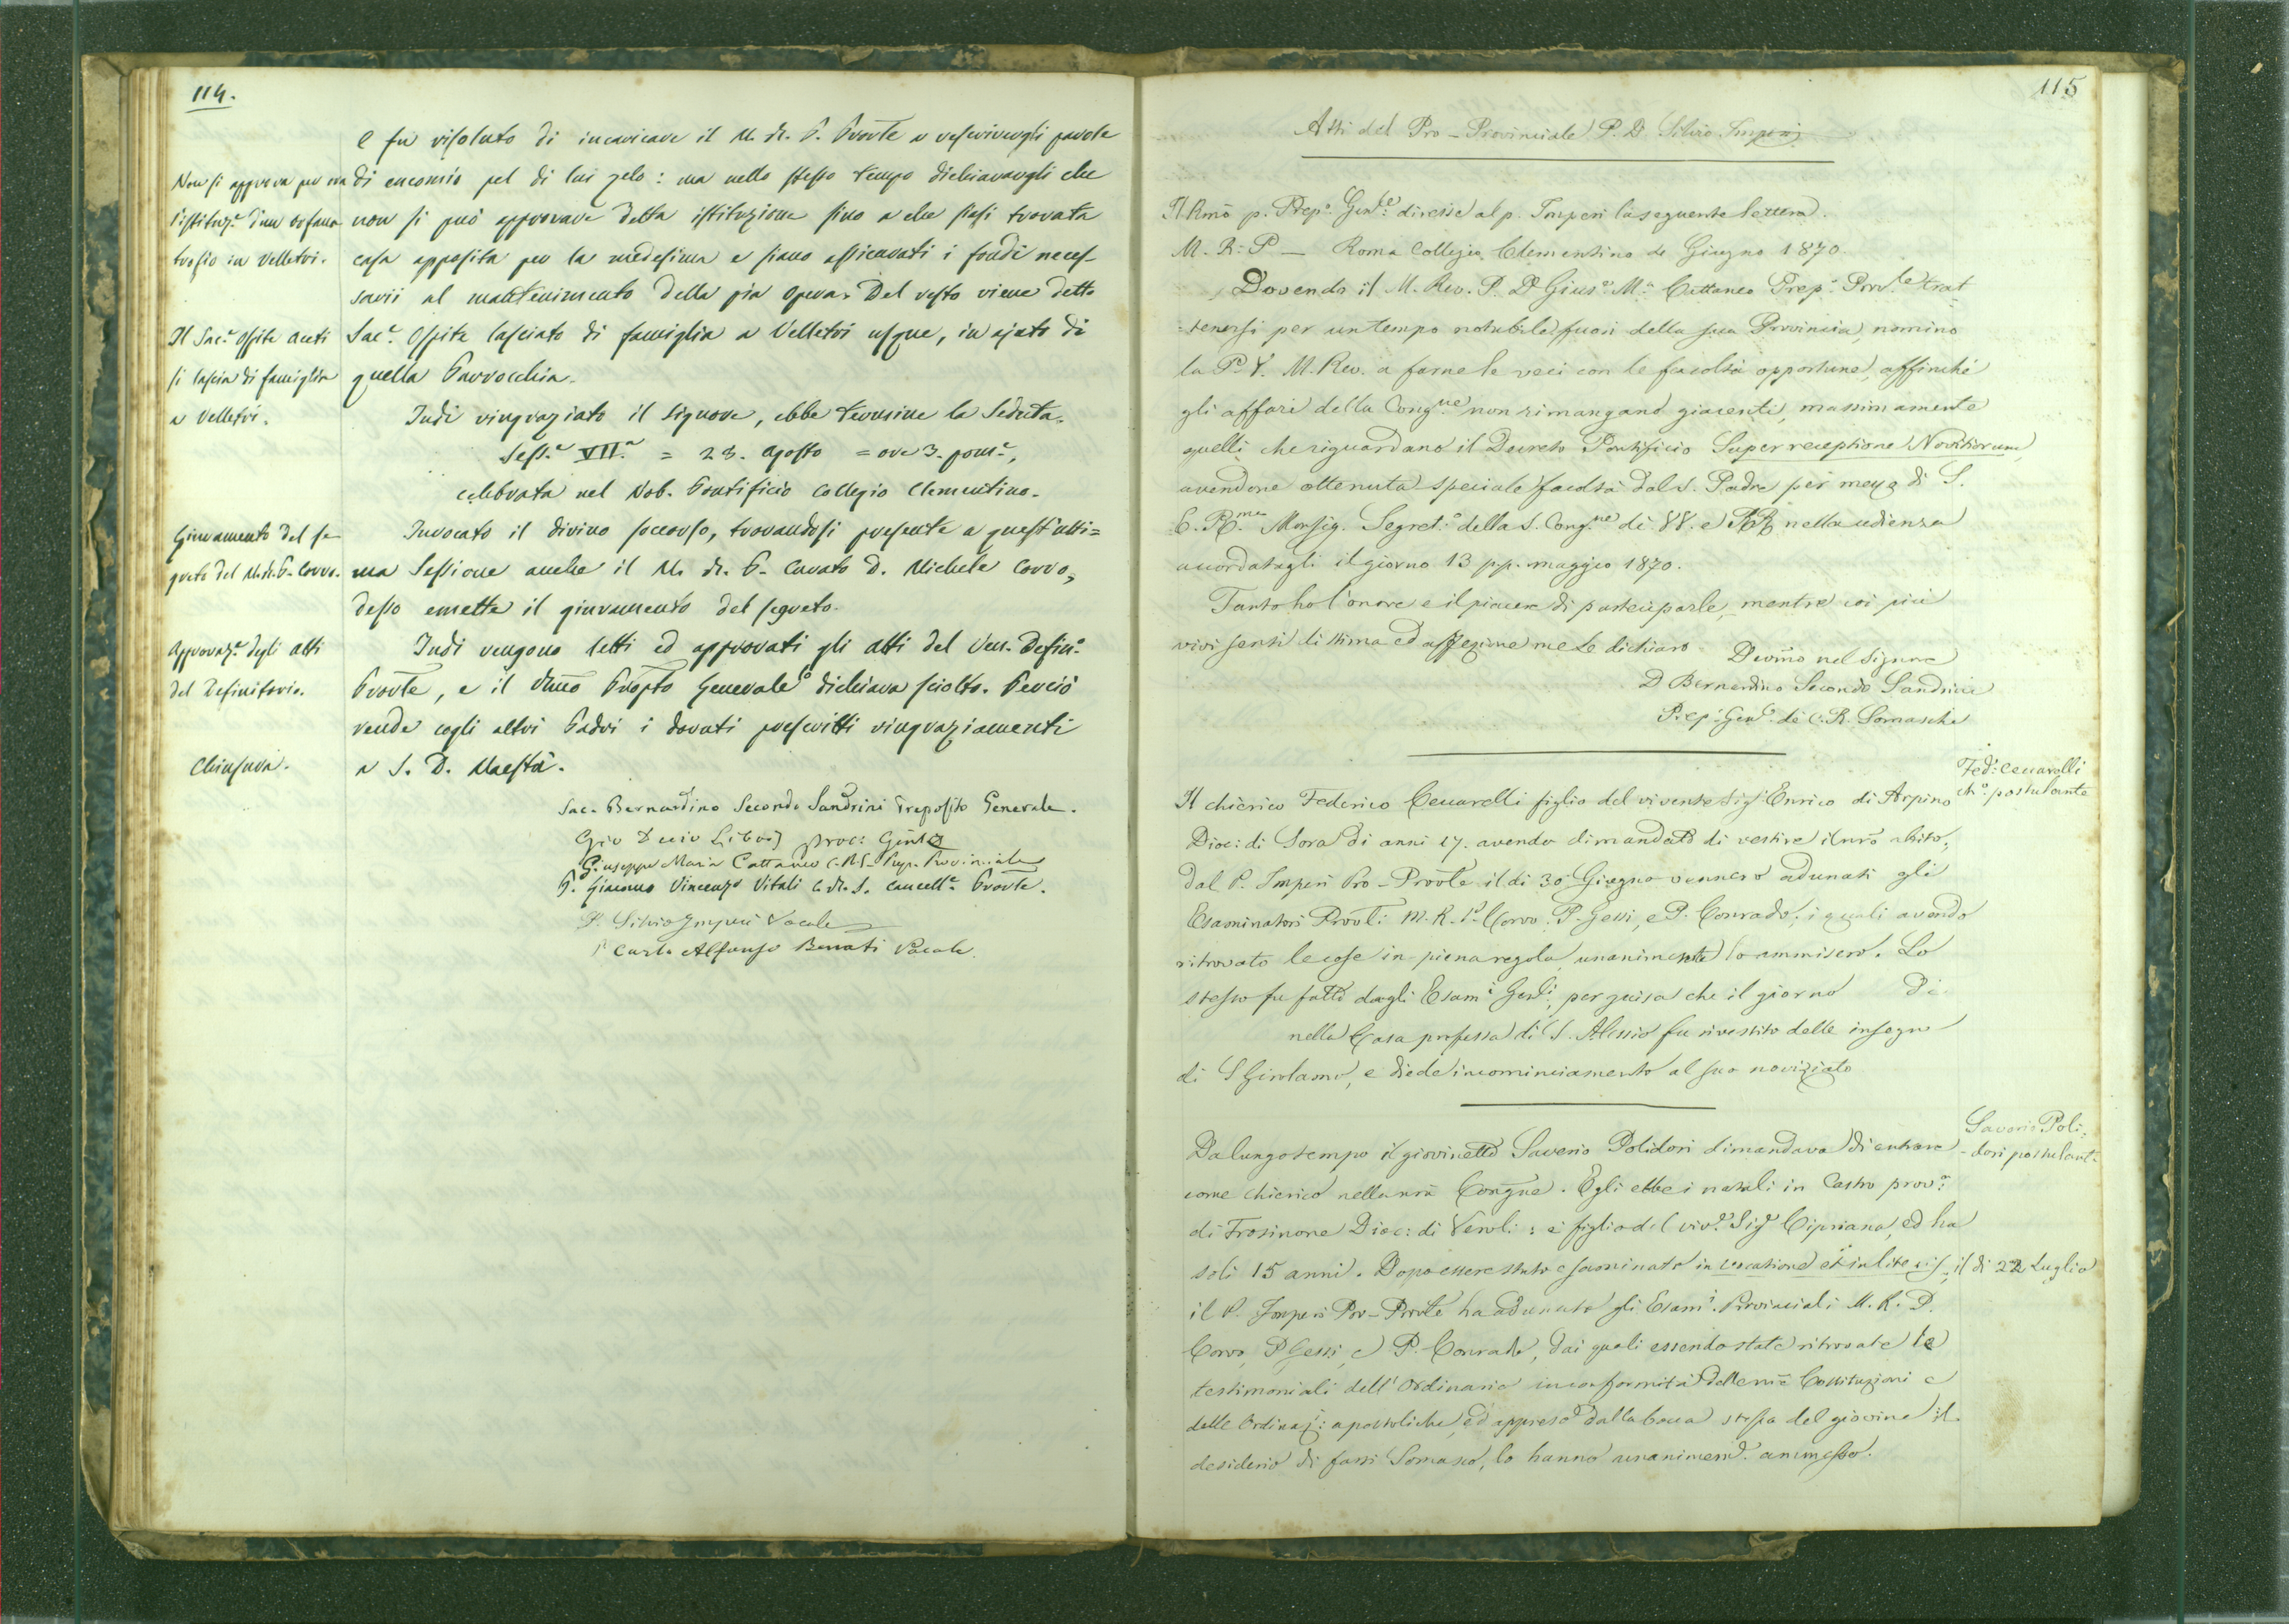 114.
e fu risoluto di incaricare il M. R. P. Provle a rescrivergli parole
Non si approva per ora
di encomio pel di lui zelo: ma nello stesso tempo dichiarargli che
l'istituz.e d'un orfano
non si può approvare detta istituzione sino a che siasi trovata
trofio in Velletri.
casa apposita per la medesima e siano assicurati i fondi neces-
sarii al mantenimento della pia opera. Del resto viene detto
Il Sac.e Ospite
Sac.e Ospite lasciato di famiglia a Velletri usque, in ajuto di
si lascia di famiglia
quella Parrocchia.
a Velletri.
Indi ringraziato il Signore, ebbe termine la Seduta.
Sess.e VII.a = 28. Agosto = ore 3. pom.e,
celebrata nel Nob. Pontificio Collegio Clementino.
Giuramento del se
Invocato il divino soccorso, trovandosi presente a quest'ulti=
greto del M. R. P. Corvo.
ma Sessione anche il M. R. P. Curato D. Michele Corvo,
desso emette il giuramento del segreto.
Approvaz.e degli atti
Indi vengono letti ed approvati gli atti del Ven. Defin.o
del Definitorio.
Provle, e il Rmo Prepto Generale lo dichiara sciolto. Perciò
rende cogli altri Padri i dovuti prescritti ringraziamenti
Chiusura.
a S. D. Maestà.
Sac. Bernardino Secondo Sandrini Preposito Generale.
Gio Decio Libois proc: Genle
Giuseppe Maria Cattaneo C.R.S. Prep. Provinciale
P. Giacomo Vincenzo Vitali C. R. S. Cancell.e Provle.
P. Silvio Imperi Vocale
P. Carlo Alfonso Benati Vocale.
115
Atti del Pro-Provinciale P. D. Silvio Imperi
Il Rmo p. Prep.o Gen.le diresse al p. Imperi la seguente lettera.
M. R. P. — Roma Collegio Clementino Giugno 1870.
Dovendo il M. Rev. P. D. Gius.e M.a Cattaneo Prep.o Prov.le trat
=tenersi per un tempo notabile fuori della sua Provincia, nomino
la P. V. M. Rev. a farne le veci con le facoltà opportune, affinchè
gli affari della Cong.ne non rimangano giacenti, massimamente
quelli che riguardano il Decreto Pontificio Super receptione Novitiorum
avendone ottenuta speciale facoltà dal S. Padre per mezzo di S.
E. R.ma Monsig. Segret.o della S. Cong.ne di VV. e RR nella udienza
accordatagli il giorno 13 p.p. maggio 1870.
Tanto ho l'onore e il piacere di parteciparle, mentre coi più
vivi sensi di stima ed affezione me Le dichiaro
Devmo nel Signore
D. Bernardino Secondo Sandrini
Prep. Gen.le de' C. R. Somaschi
Fed.o Ceccarelli
ch.o postulante
Il chierico Federico Ceccarelli figlio del vivente Sig. Enrico di Arpino
Dioc: di Sora di anni 17. avendo dimandato di vestire il nro abito,
dal P. Imperi Pro-Provle il dì 30 Giugno vennero adunati gli
Esaminatori Provli M. R. P. Corvo. P. Gessi, e P. Conrado, i quali avendo
ritrovato le cose in piena regola unanimente lo ammisero. Lo
stesso fu fatto dagli Esam.i Genli, per guisa che il giorno di
nella Casa professa di S. Alessio fu rivestito delle insegne
di S Girolamo, e diede incominciamento al suo noviziato
Saverio Poli:
dori postulant.
Da lungo tempo il giovinetto Saverio Polidori dimandava di entrare
come chierico nella nra Congne. Egli ebbe i natali in Castro prov.a
di Frosinone Dioc: di Veroli: è figlio del viv.e Sig.r Cipriano, ed ha
soli 15 anni. Dopo essere stato esaminato in vocatione et in lite il dì 22 Luglio
il P. Imperi Pro-Provle ha adunato gli Esam.i Provinciali M. R. P.
Corvo, P Gessi, e P. Conrado, dai quali essendo state ritrovate le
testimoniali dell'Ordinario in conformità delle nre Costituzioni e
delle Ordinaz.i: apostoliche, ed appreso dalla bocca stessa del giovine il
desiderio di farsi Somasco, lo hanno unanimem.e ammesso.